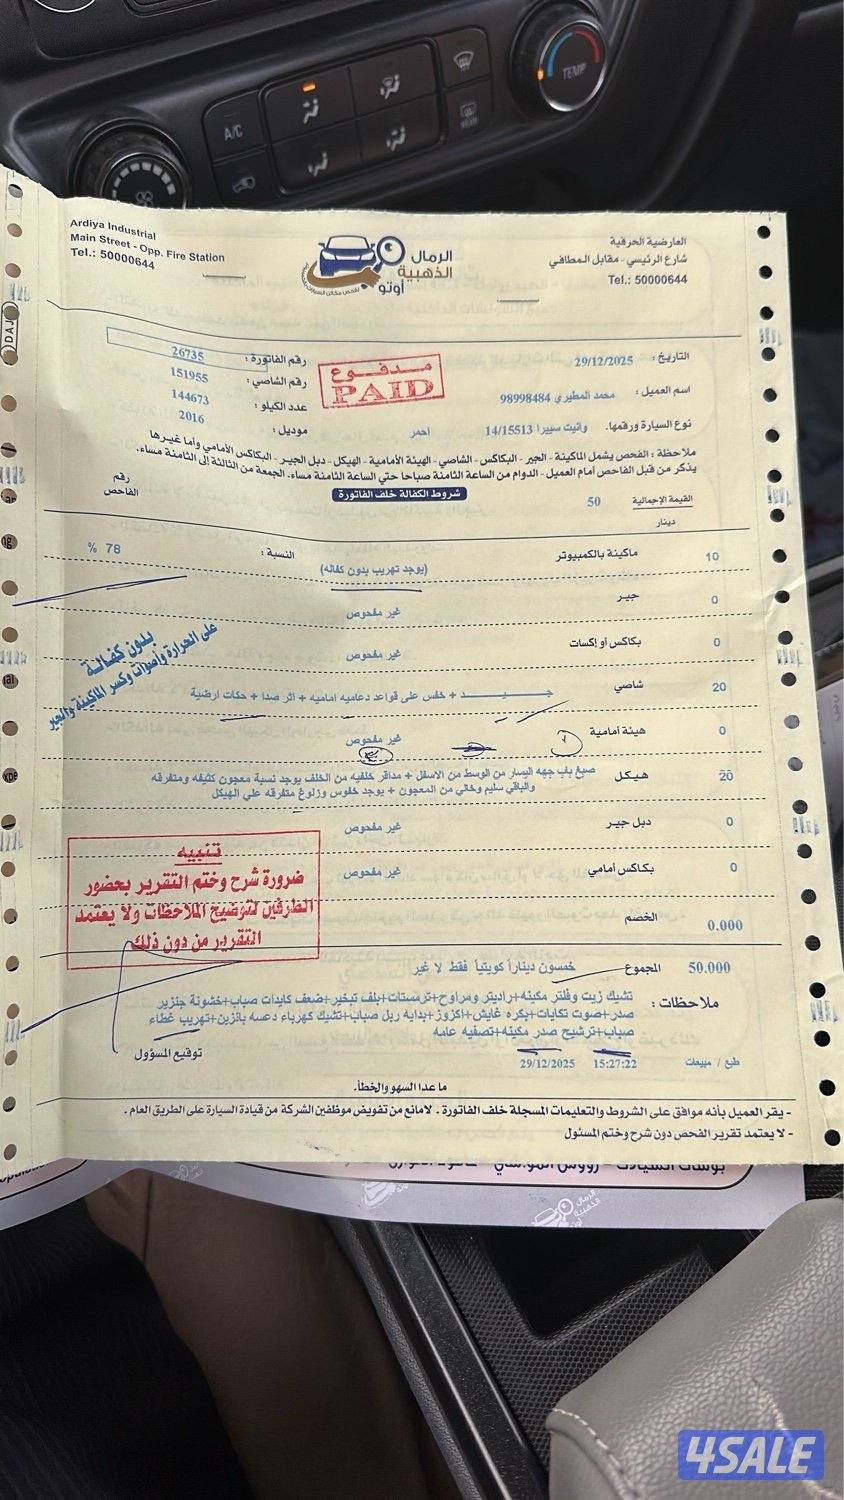 A/C
TEMP
REAR
Ardiya Industrial
Main Street - Opp. Fire Station
Tel.: 50000644
الرمال
الذهبية
أوتو
لفحص مكائن السيارات
العارضية الحرفية
شارع الرئيسي - مقابل المطافي
Tel.: 50000644
التاريخ: 29/12/2025
رقم الفاتورة: 26735
مدفوع
PAID
رقم الشاصي: 151955
اسم العميل: محمد المطيري 98998484
عدد الكيلو: 144673
نوع السيارة ورقمها. وانيت سييرا 14/15513 احمر
موديل: 2016
ملاحظة: الفحص يشمل الماكينة - الجير - البكاكس - الشاصي - الهيئة الأمامية - الهيكل - دبل الجير - البكاكس الأمامي وأما غيرها
يذكر من قبل الفاحص أمام العميل - الدوام من الساعة الثامنة صباحا حتي الساعة الثامنة مساء، الجمعة من الثالثة إلى الثامنة مساء.
شروط الكفالة خلف الفاتورة
رقم
الفاحص
القيمة الإجمالية 50
دينار
10 ماكينة بالكمبيوتر النسبة: 78 %
(يوجد تهريب بدون كفاله)
0 جير غير مفحوص
بدون كفالة
على الحرارة وأصوات وكسر الماكينة والجير
0 بكاكس أو إكسات غير مفحوص
20 شاصي جـــيـــد + خفس على قواعد دعاميه اماميه + اثر صدا + حكات ارضية
0 هيئة أمامية غير مفحوص
20 هيكل صبغ باب جهه اليسار من الوسط من الاسفل + مداقر خلفيه من الخلف يوجد نسبة معجون كثيفه ومتفرقه
والباقي سليم وخالي من المعجون + يوجد خفوس وزلوغ متفرقه علي الهيكل
0 دبل جير غير مفحوص
0 بكاكس أمامي غير مفحوص
تنبيه
ضرورة شرح وختم التقرير بحضور
الطرفين لتوضيح الملاحظات ولا يعتمد
التقرير من دون ذلك
0.000 الخصم
50.000 المجموع خمسون ديناراً كويتياً فقط لا غير
ملاحظات: تشيك زيت وفلتر مكينه+راديتر ومراوح+ترمستات+بلف تبخير+ضعف كايدات صباب+خشونة جنزير
صدر+صوت تكايات+بكره غايش+اكزوز+بدايه ربل صباب+تشيك كهرباء دعسه بانزين+تهريب غطاء
صباب+ترشيح صدر مكينه+تصفيه عامه
طبع / مبيعات 15:27:22 29/12/2025
توقيع المسؤول
ما عدا السهو والخطأ.
- يقر العميل بأنه موافق على الشروط والتعليمات المسجلة خلف الفاتورة . لامانع من تفويض موظفين الشركة من قيادة السيارة على الطريق العام .
- لا يعتمد تقرير الفحص دون شرح وختم المسئول
الرمال
الذهبية
أوتو
4SALE